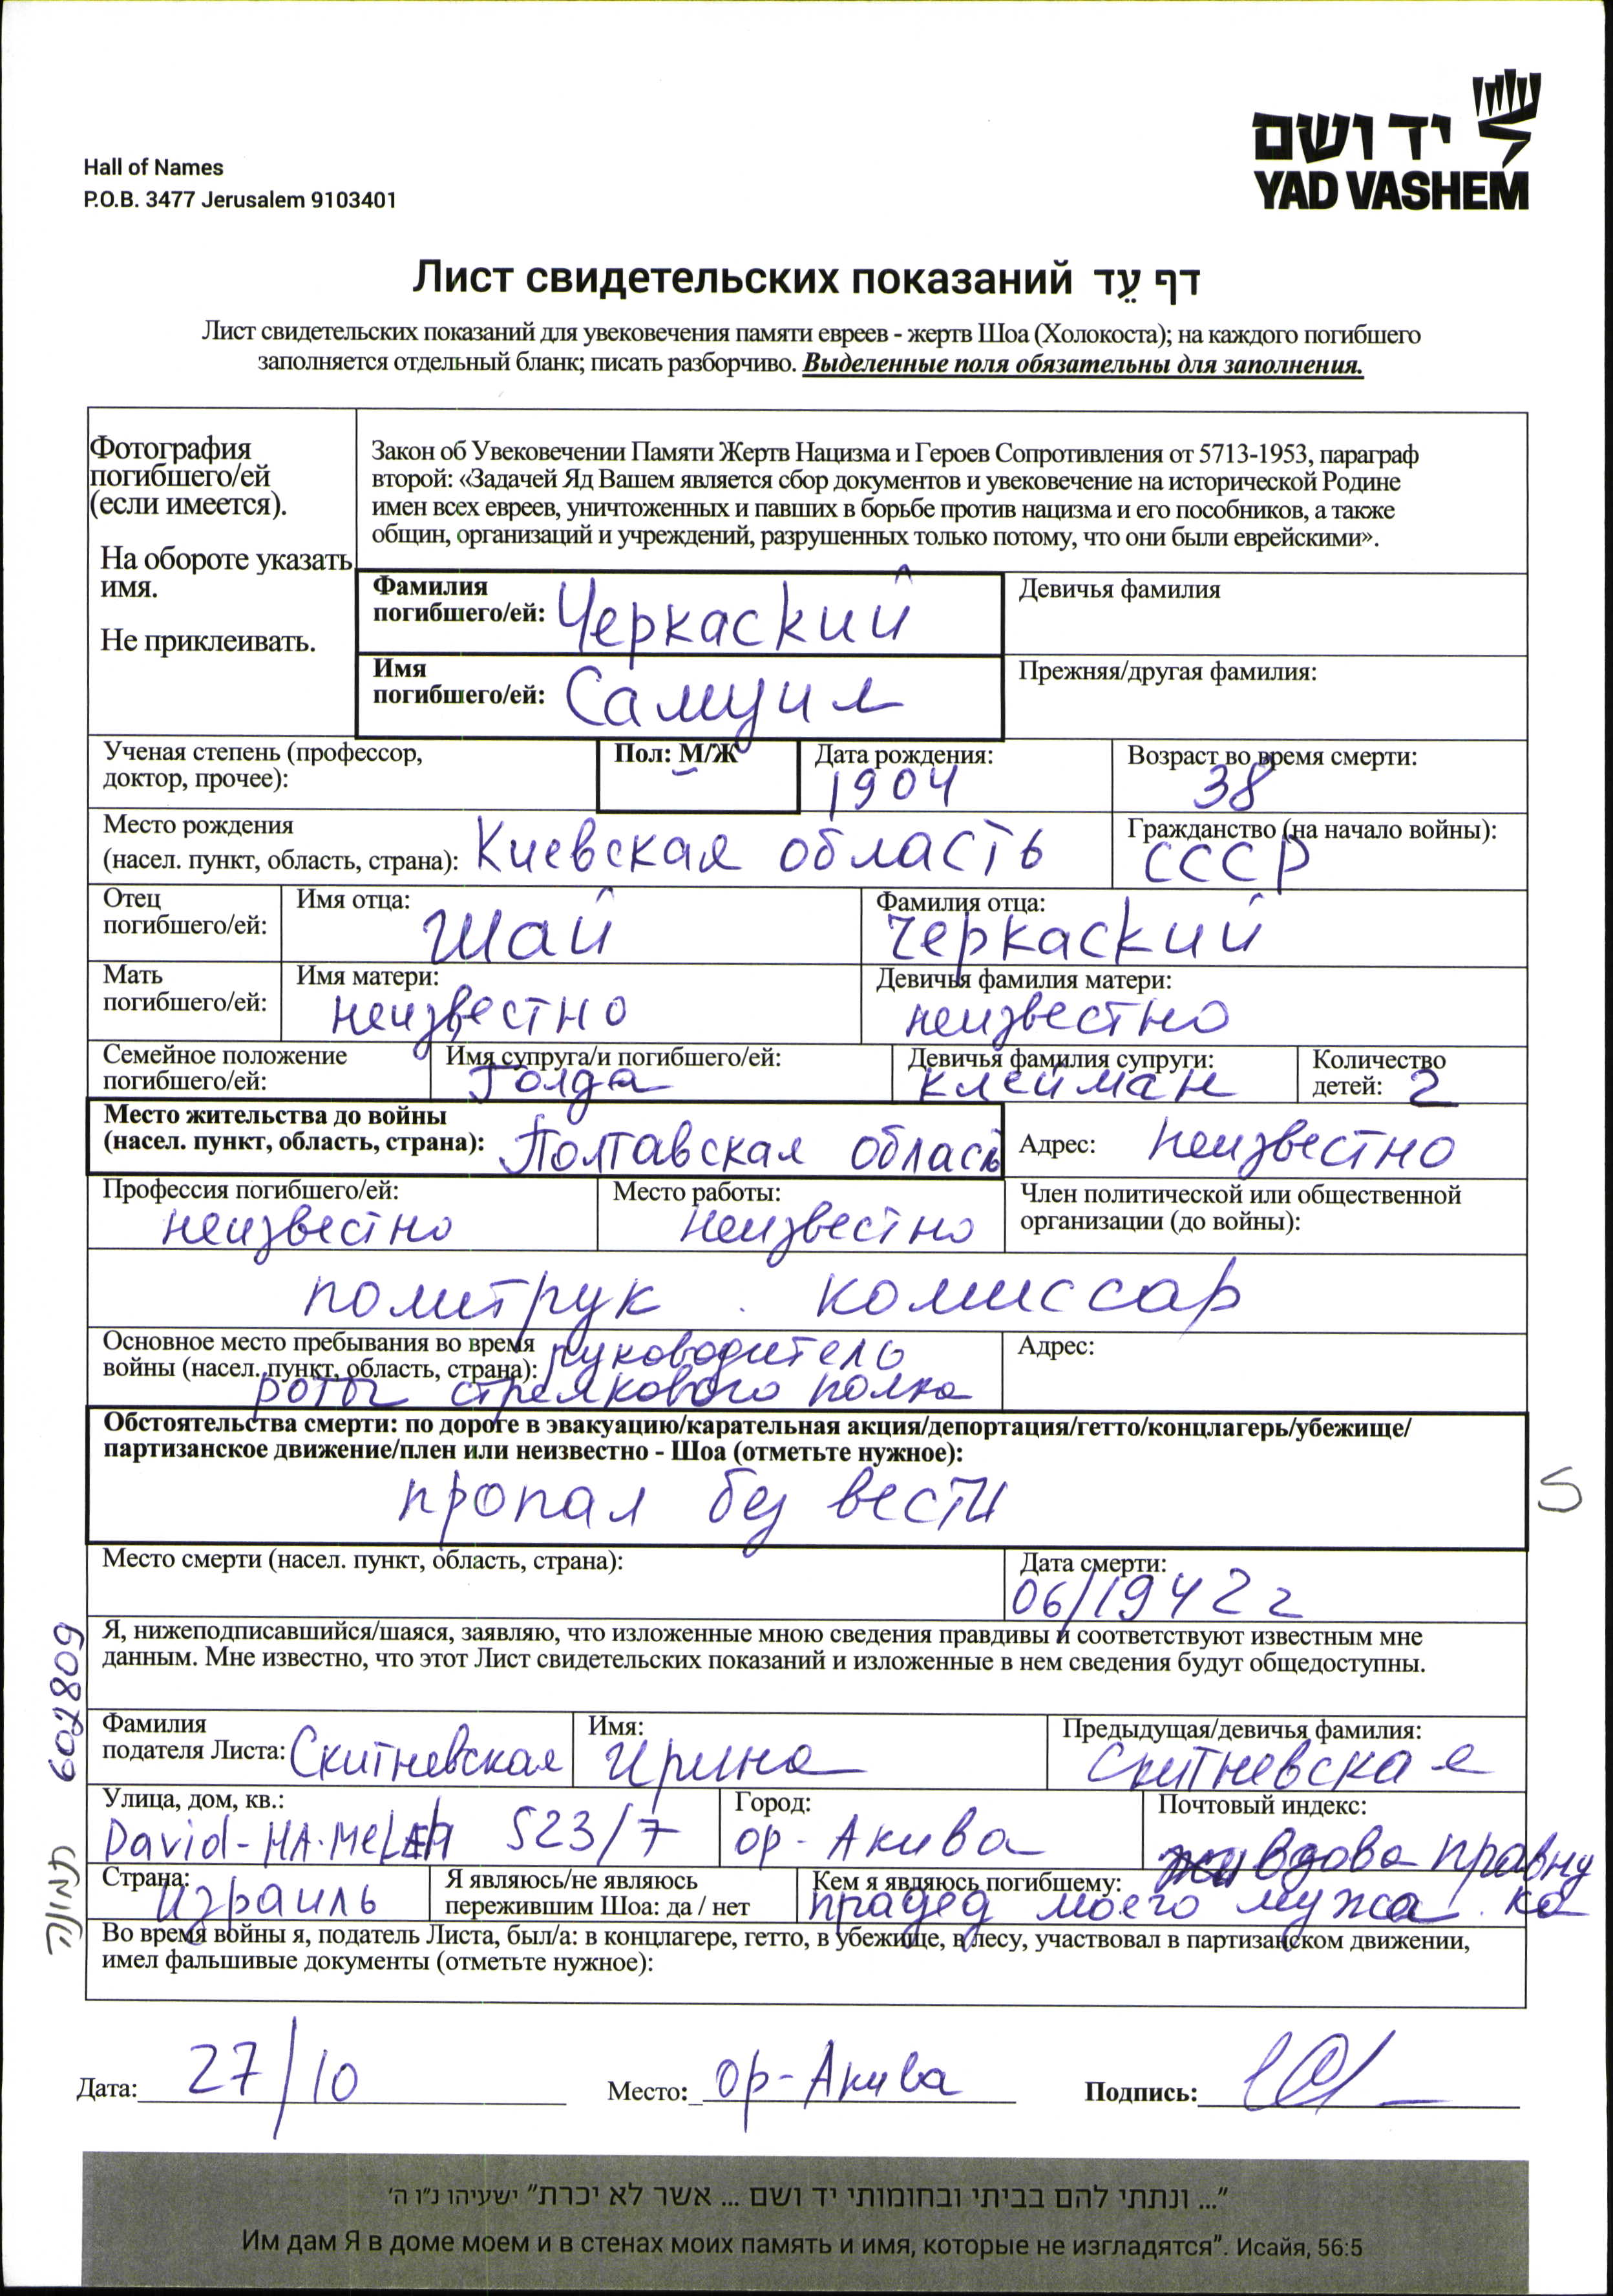 Hall of Names
P.O.B. 3477 Jerusalem 9103401
יד ושם
YAD VASHEM
Лист свидетельских показаний דף עֵד
Лист свидетельских показаний для увековечения памяти евреев - жертв Шоа (Холокоста); на каждого погибшего
заполняется отдельный бланк; писать разборчиво. Выделенные поля обязательны для заполнения.
Фотография
погибшего/ей
(если имеется).
На обороте указать
имя.
Не приклеивать.
Закон об Увековечении Памяти Жертв Нацизма и Героев Сопротивления от 5713-1953, параграф
второй: «Задачей Яд Вашем является сбор документов и увековечение на исторической Родине
имен всех евреев, уничтоженных и павших в борьбе против нацизма и его пособников, а также
общин, организаций и учреждений, разрушенных только потому, что они были еврейскими».
Фамилия
погибшего/ей: Черкаский
Девичья фамилия
Имя
погибшего/ей: Самуил
Прежняя/другая фамилия:
Ученая степень (профессор,
доктор, прочее):
Пол: М/Ж
Дата рождения:
1904
Возраст во время смерти:
38
Место рождения
(насел. пункт, область, страна): Киевская область
Гражданство (на начало войны):
СССР
Отец
погибшего/ей:
Имя отца:
Шай
Фамилия отца:
Черкаский
Мать
погибшего/ей:
Имя матери:
неизвестно
Девичья фамилия матери:
неизвестно
Семейное положение
погибшего/ей:
Имя супруга/и погибшего/ей:
Голда
Девичья фамилия супруги:
клейман
Количество
детей: 2
Место жительства до войны
(насел. пункт, область, страна): Полтавская область
Адрес: неизвестно
Профессия погибшего/ей:
неизвестно
Место работы:
неизвестно
Член политической или общественной
организации (до войны):
политрук . комиссар
Основное место пребывания во время
войны (насел. пункт, область, страна): руководитель
роты стрелкового полка
Адрес:
Обстоятельства смерти: по дороге в эвакуацию/карательная акция/депортация/гетто/концлагерь/убежище/
партизанское движение/плен или неизвестно - Шоа (отметьте нужное):
пропал без вести
S
Место смерти (насел. пункт, область, страна):
Дата смерти:
06/1942 г
Я, нижеподписавшийся/шаяся, заявляю, что изложенные мною сведения правдивы и соответствуют известным мне
данным. Мне известно, что этот Лист свидетельских показаний и изложенные в нем сведения будут общедоступны.
Фамилия
подателя Листа: Скитневская
Имя:
Ирина
Предыдущая/девичья фамилия:
Скитневская
Улица, дом, кв.:
David-HA-MELEH 523/7
Город:
ор-Акива
Почтовый индекс:
вдова правну
ка
Страна:
Израиль
Я являюсь/не являюсь
пережившим Шоа: да / нет
Кем я являюсь погибшему:
прадед моего мужа
Во время войны я, податель Листа, был/а: в концлагере, гетто, в убежище, в лесу, участвовал в партизанском движении,
имел фальшивые документы (отметьте нужное):
תמונה 602809
Дата: 27/10
Место: ор-Акива
Подпись:
"... ונתתי להם בביתי ובחומותי יד ושם ... אשר לא יכרת" ישעיהו נ"ו ה'
Им дам Я в доме моем и в стенах моих память и имя, которые не изгладятся". Исайя, 56:5